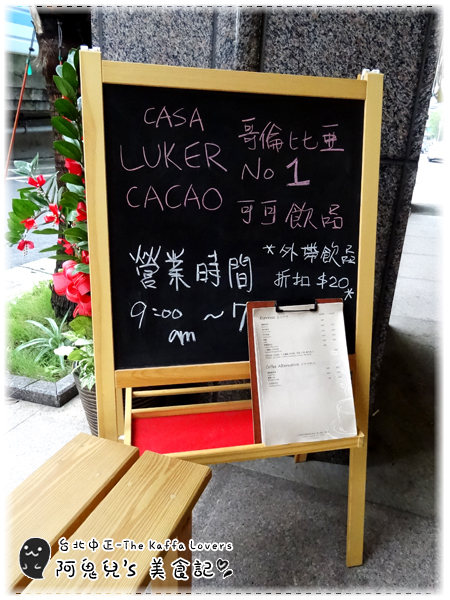 CASA
LUKER
CACAO
哥倫比亞
No 1
可可飲品
營業時間
9:00 ~ 7
am
*外帶飲品
折扣 $20
*
台北中正-The Kaffa Lovers
阿鬼兒's 美食記